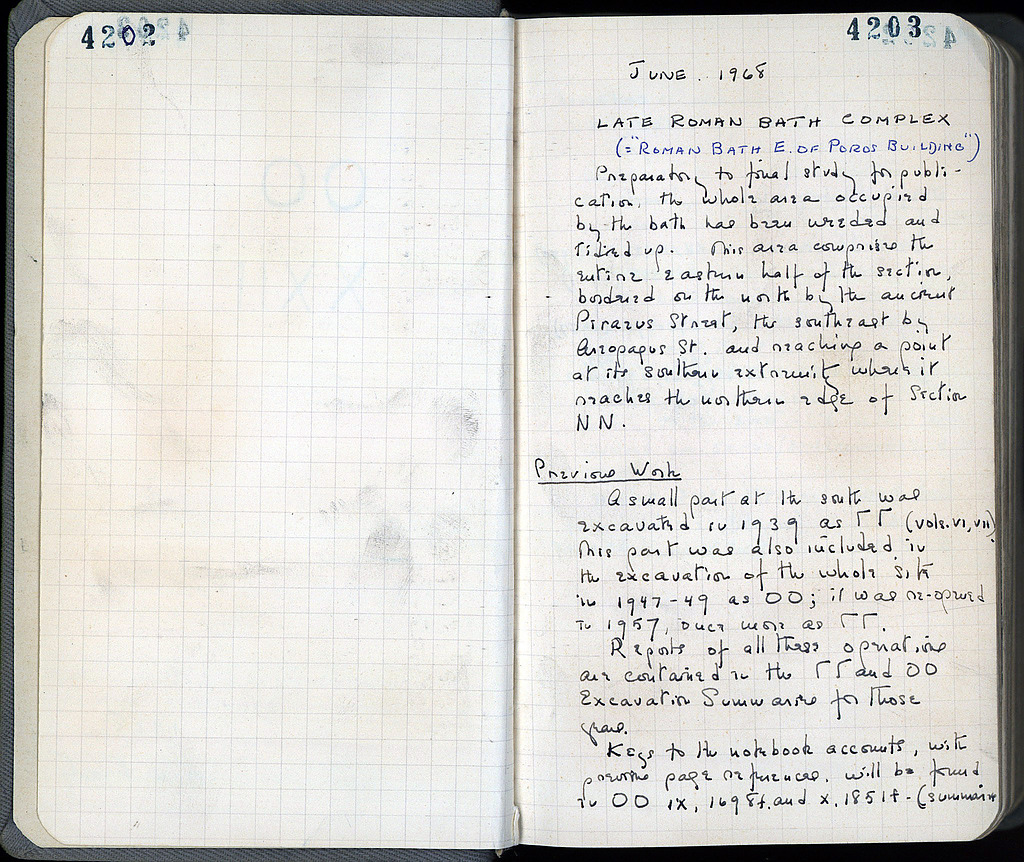 4202
4203
JUNE. 1968
LATE ROMAN BATH COMPLEX
(="ROMAN BATH E. OF POROS BUILDING")
Preparatory to final study for publi-
cation, the whole area occupied
by the bath has been weeded and
tidied up. This area comprises the
entire eastern half of the section,
bordered on the north by the ancient
Piraeus Street, the southeast by
Areopagus St. and reaching a point
at its southern extremity where it
reaches the northern edge of Section
NN.
Previous Work
A small part at the south was
excavated in 1939 as ΓΓ (vols. VI, VII).
This part was also included in
the excavation of the whole site
in 1947-49 as OO; it was re-opened
in 1957, once more as ΓΓ.
Reports of all these operations
are contained in the ΓΓ and OO
Excavation Summaries for those
years.
Keys to the notebook accounts, with
previous page references, will be found
in OO IX, 1698f. and X, 1851f - (summaries